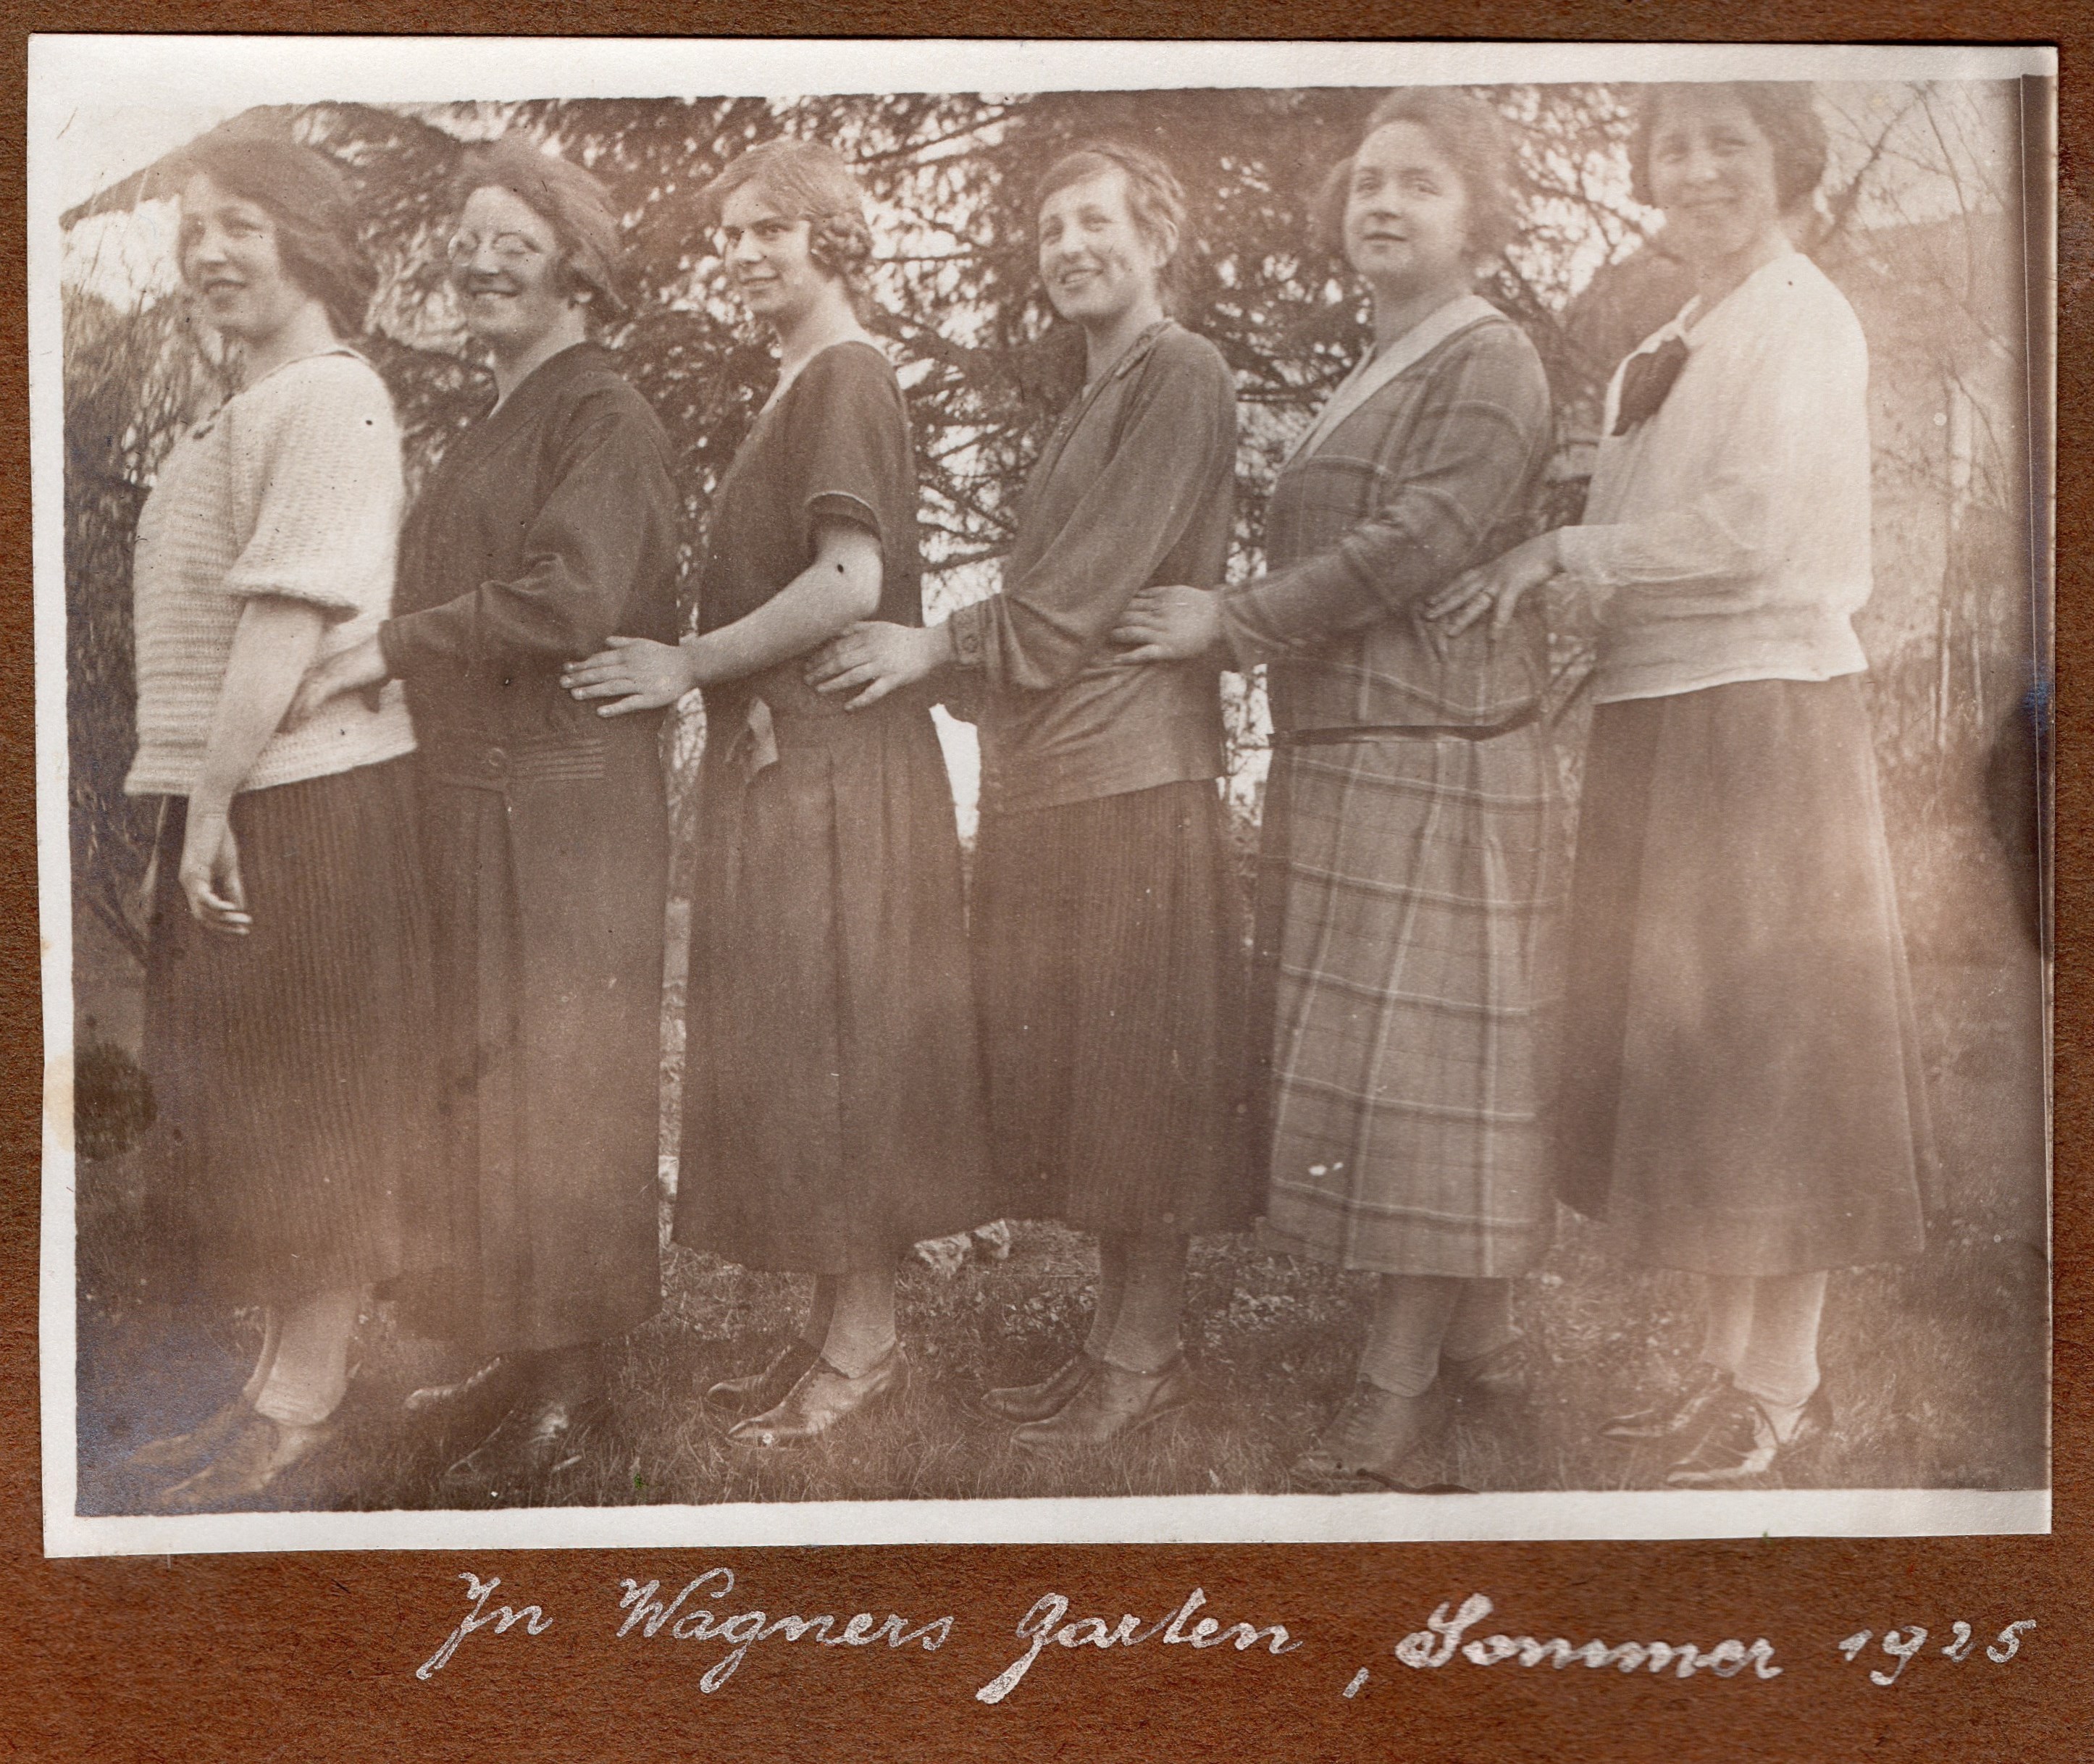 In Wagners Garten, Sommer 1925